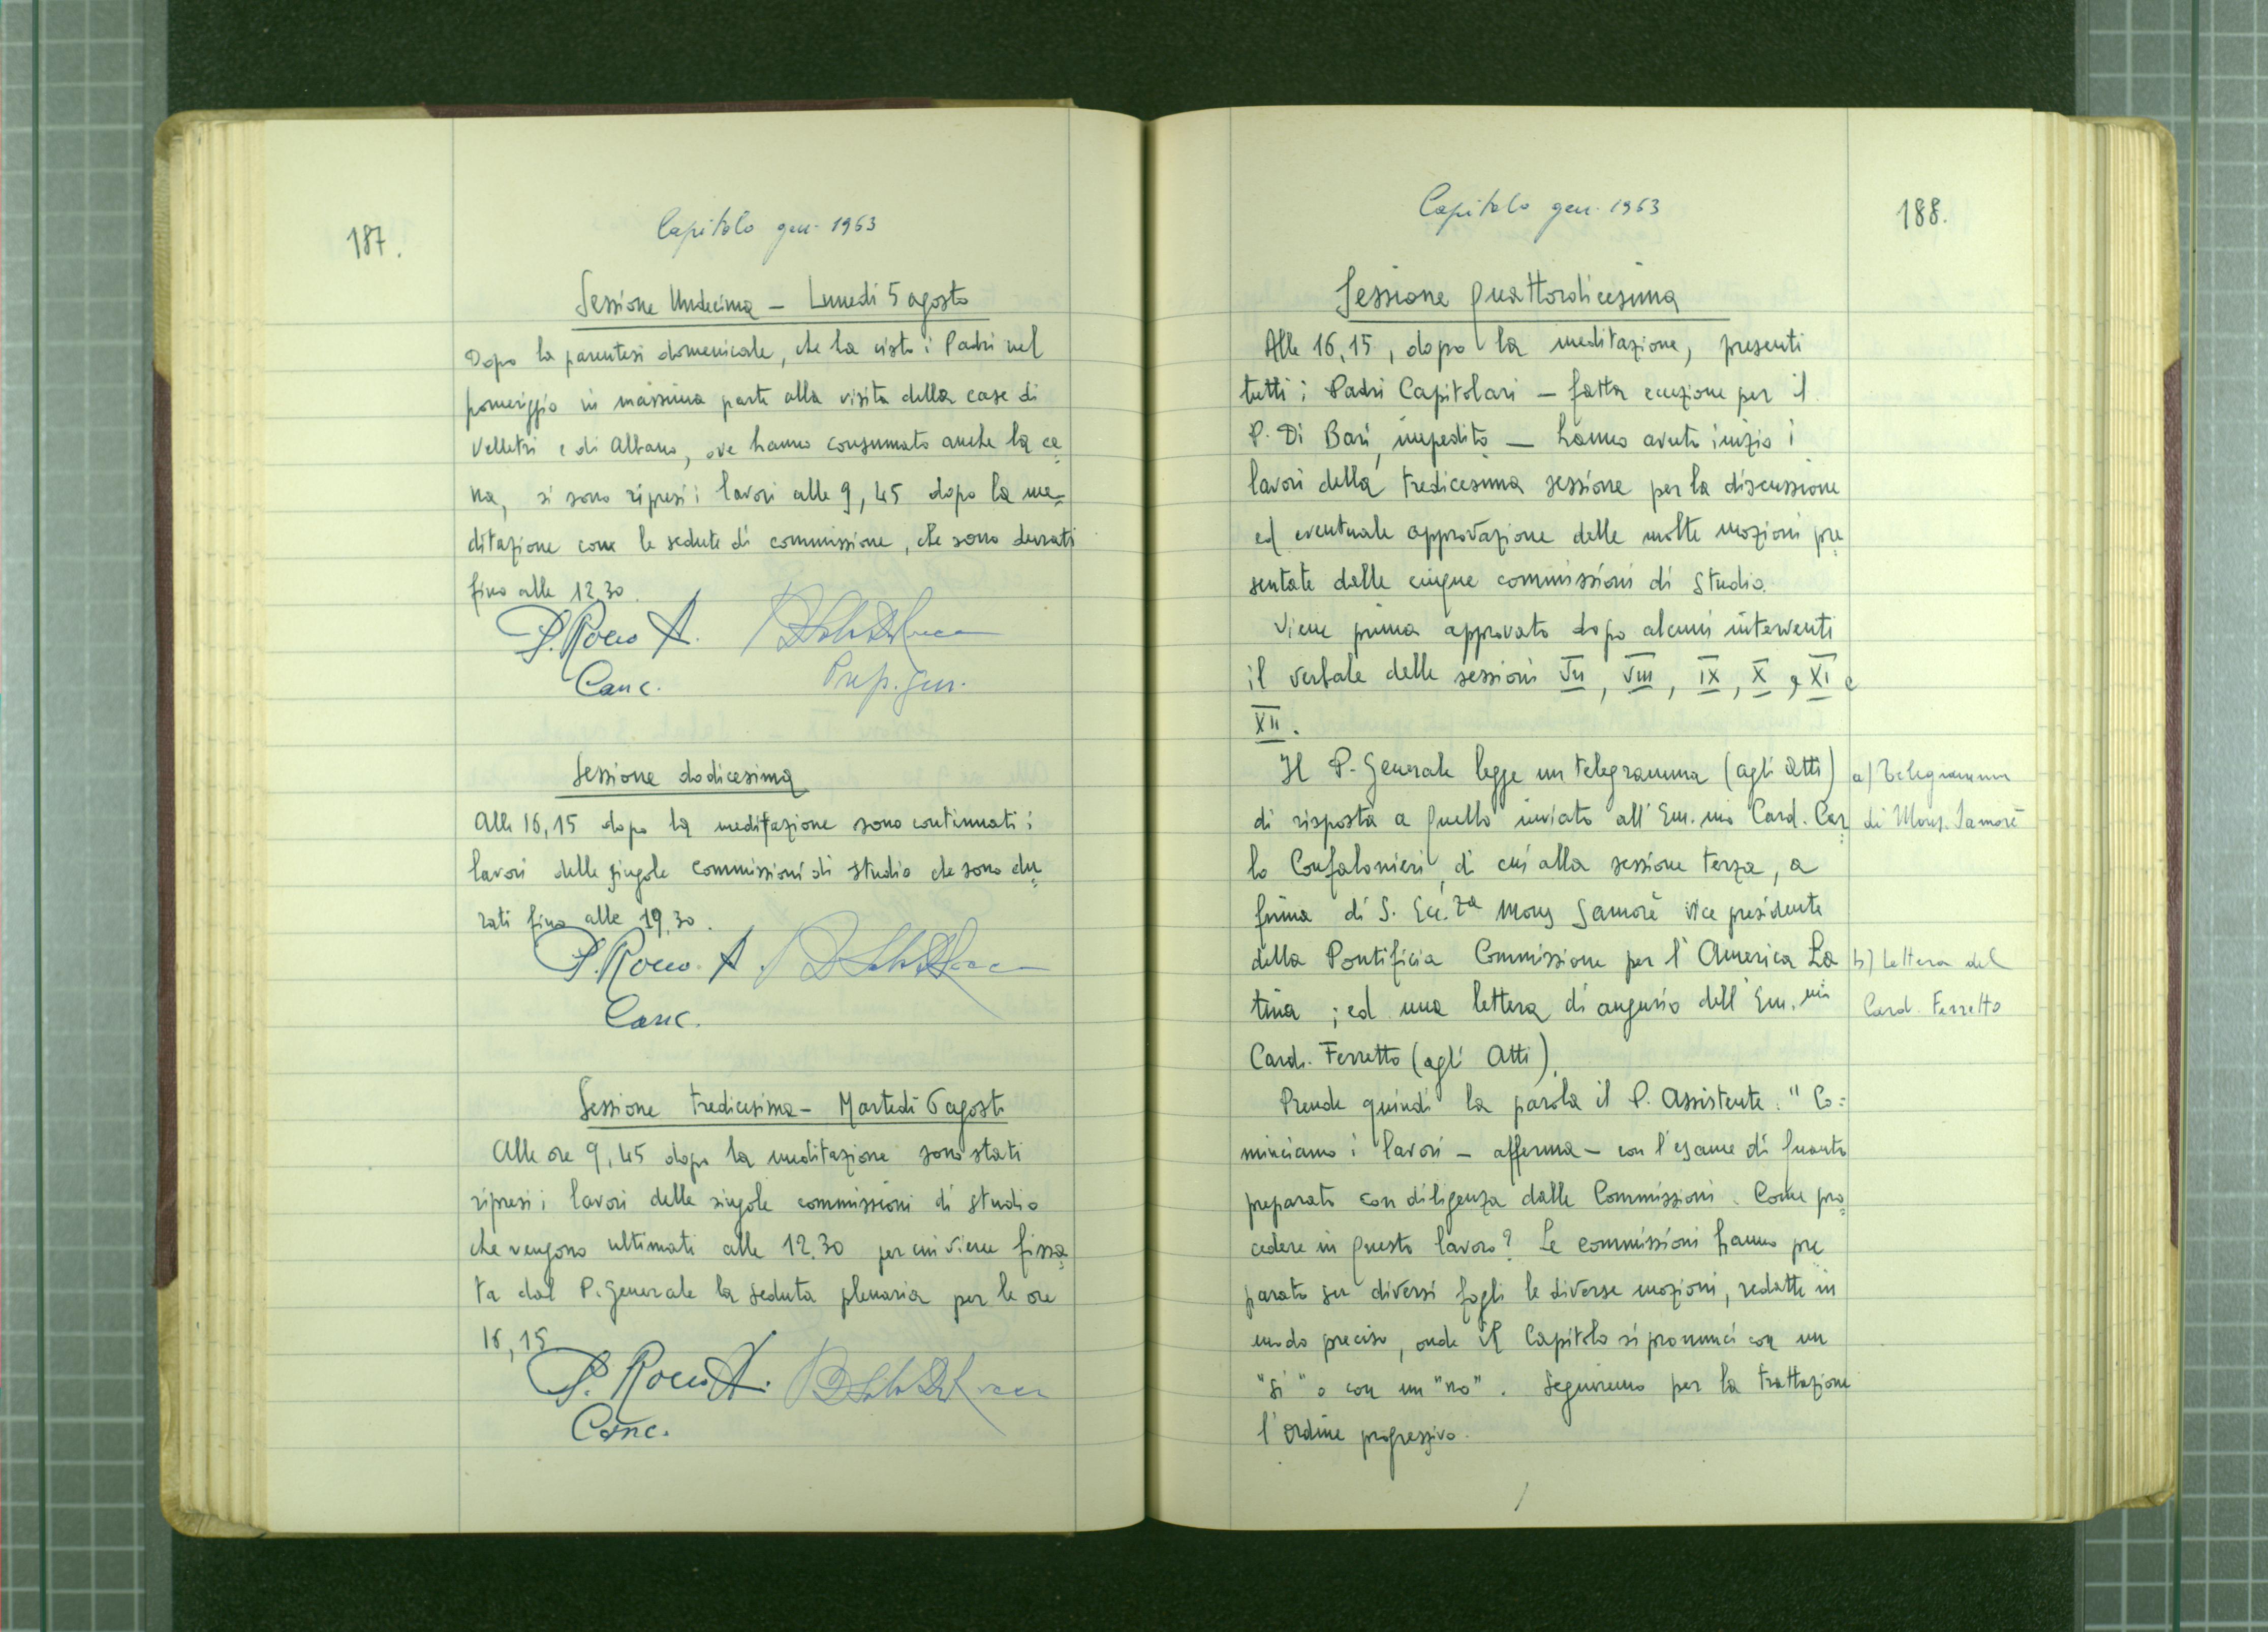 187.
Capitolo gen. 1963
Sessione Undecima – Lunedì 5 agosto
Dopo la parentesi domenicale, che ha visto i Padri nel
pomeriggio in massima parte alla visita della case di
Velletri e di Albano, ove hanno consumato anche la ce=
na, si sono ripresi i lavori alle 9,45 dopo la me=
ditazione con le sedute di commissione, che sono durati
fino alle 12.30.
P. Rocco A.
Canc.
Prep. Gen.
Sessione dodicesima
Alle 16,15 dopo la meditazione sono continuati i
lavori delle singole commissioni di studio che sono du=
rati fino alle 19.30.
P. Rocco A.
Canc.
Sessione tredicesima – Martedì 6 agosto
Alle ore 9,45 dopo la meditazione sono stati
ripresi i lavori delle singole commissioni di studio
che vengono ultimati alle 12.30 per cui viene fissa=
ta dal P. Generale la seduta plenaria per le ore
16,15
P. Rocco A.
Canc.
188.
Capitolo gen. 1963
Sessione quattordicesima
Alle 16,15, dopo la meditazione, presenti
tutti i Padri Capitolari – fatta eccezione per il
P. Di Bari, impedito – hanno avuto inizio i
lavori della tredicesima sessione per la discussione
ed eventuale approvazione delle molte mozioni pre=
sentate dalle cinque commissioni di studio.
Viene prima approvato dopo alcuni interventi
il verbale delle sessioni VII, VIII, IX, X, XI e
XII.
Il P. Generale legge un telegramma (agli Atti)
di risposta a quello inviato all'Em.mo Card. Car=
lo Confalonieri, di cui alla sessione terza, a
firma di S. Ecc.za Mons Samorè vice presidente
della Pontificia Commissione per l'America La
tina; ed una lettera di augurio dell'Em.mo
Card. Ferretto (agli Atti).
a) Telegramma
di Mons. Samorè
b) Lettera del
Card. Ferretto
Prende quindi la parola il P. Assistente: "Co=
minciamo i lavori – afferma – con l'esame di quanto
preparato con diligenza dalle Commissioni. Come pro=
cedere in questo lavoro? Le commissioni hanno pre
parato su diversi fogli le diverse mozioni, redatte in
modo preciso, onde il Capitolo si pronunci con un
"sì" o con un "no". Seguiremo per la trattazione
l'ordine progressivo.